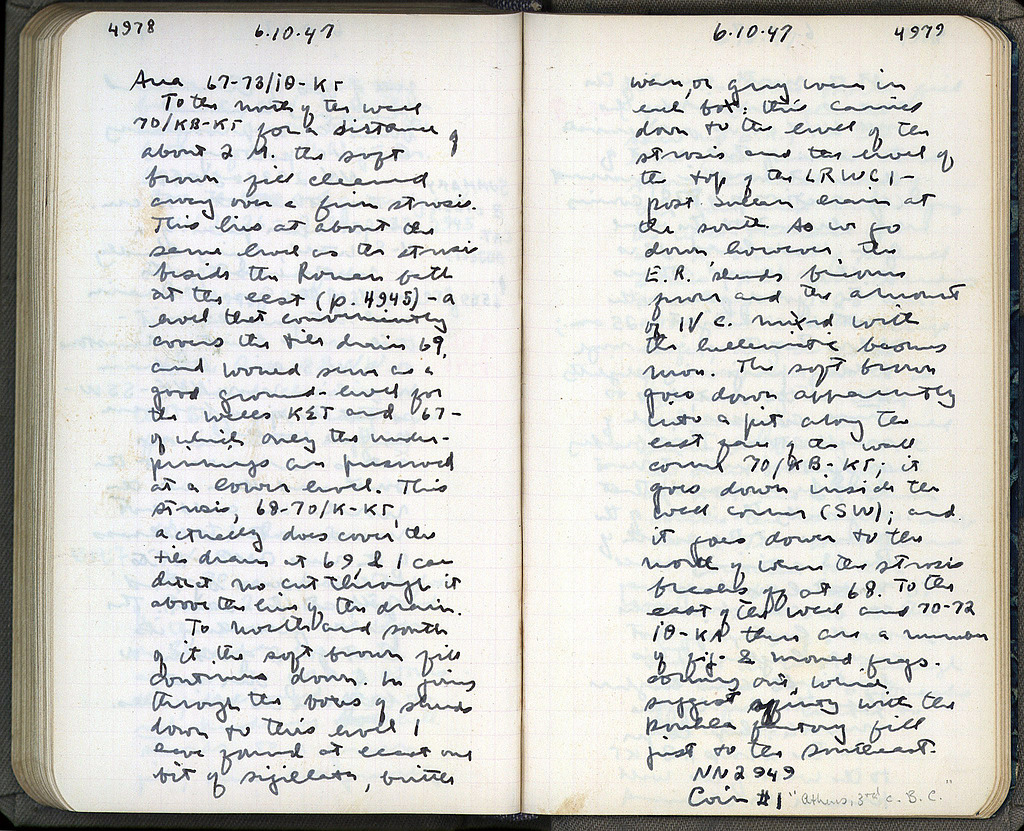 4978
6.10.47
Area 67-73/ΙΘ-ΚΓ
To the north of the wall
70/ΚΒ-ΚΓ for a distance of
about 2 M. the soft
brown fill cleaned
away over a firm strosis.
This lies at about the
same level as the strosis
beside the Roman bath
at the east (p. 4945) - a
level that conveniently
covers the tiles drain 69,
and would seem as a
good ground-level for
the walls ΚΣΤ and 67-
of which only the under-
pinnings are preserved
at a lower level. This
strosis, 68-70/Κ-ΚΓ,
actually does cover the
tiles drain at 69, & I can
detect no cut through it
above the line of the drain.
To north and south
of it the soft brown fill
continues down. In going
through the boxes of sherds
down to this level I
have found at least one
bit of sigillata, brittle
6.10.47
4979
ware, or gray ware in
each box: this carries
down to the level of the
strosis and the level of
the top of the LRWC1-
post Sullan drain at
the south. As we go
down however, the
E.R. sherds become
fewer and the amount
of IV c. mixed with
the hellenistic becomes
more. The soft brown
goes down apparently
into a pit along the
east face of the wall
corner 70/ΚΒ-ΚΓ; it
goes down inside the
wall corner (SW); and
it goes down to the
north of where the strosis
breaks off at 68. To the
east of the wall and 70-72
ΙΘ-ΚΑ there are a number
of fig. & mould frags.
coming out, which
suggest affinity with the
factory fill
just to the southeast.
NN2949
Coin #1 "Athens, 3rd c. B.C."